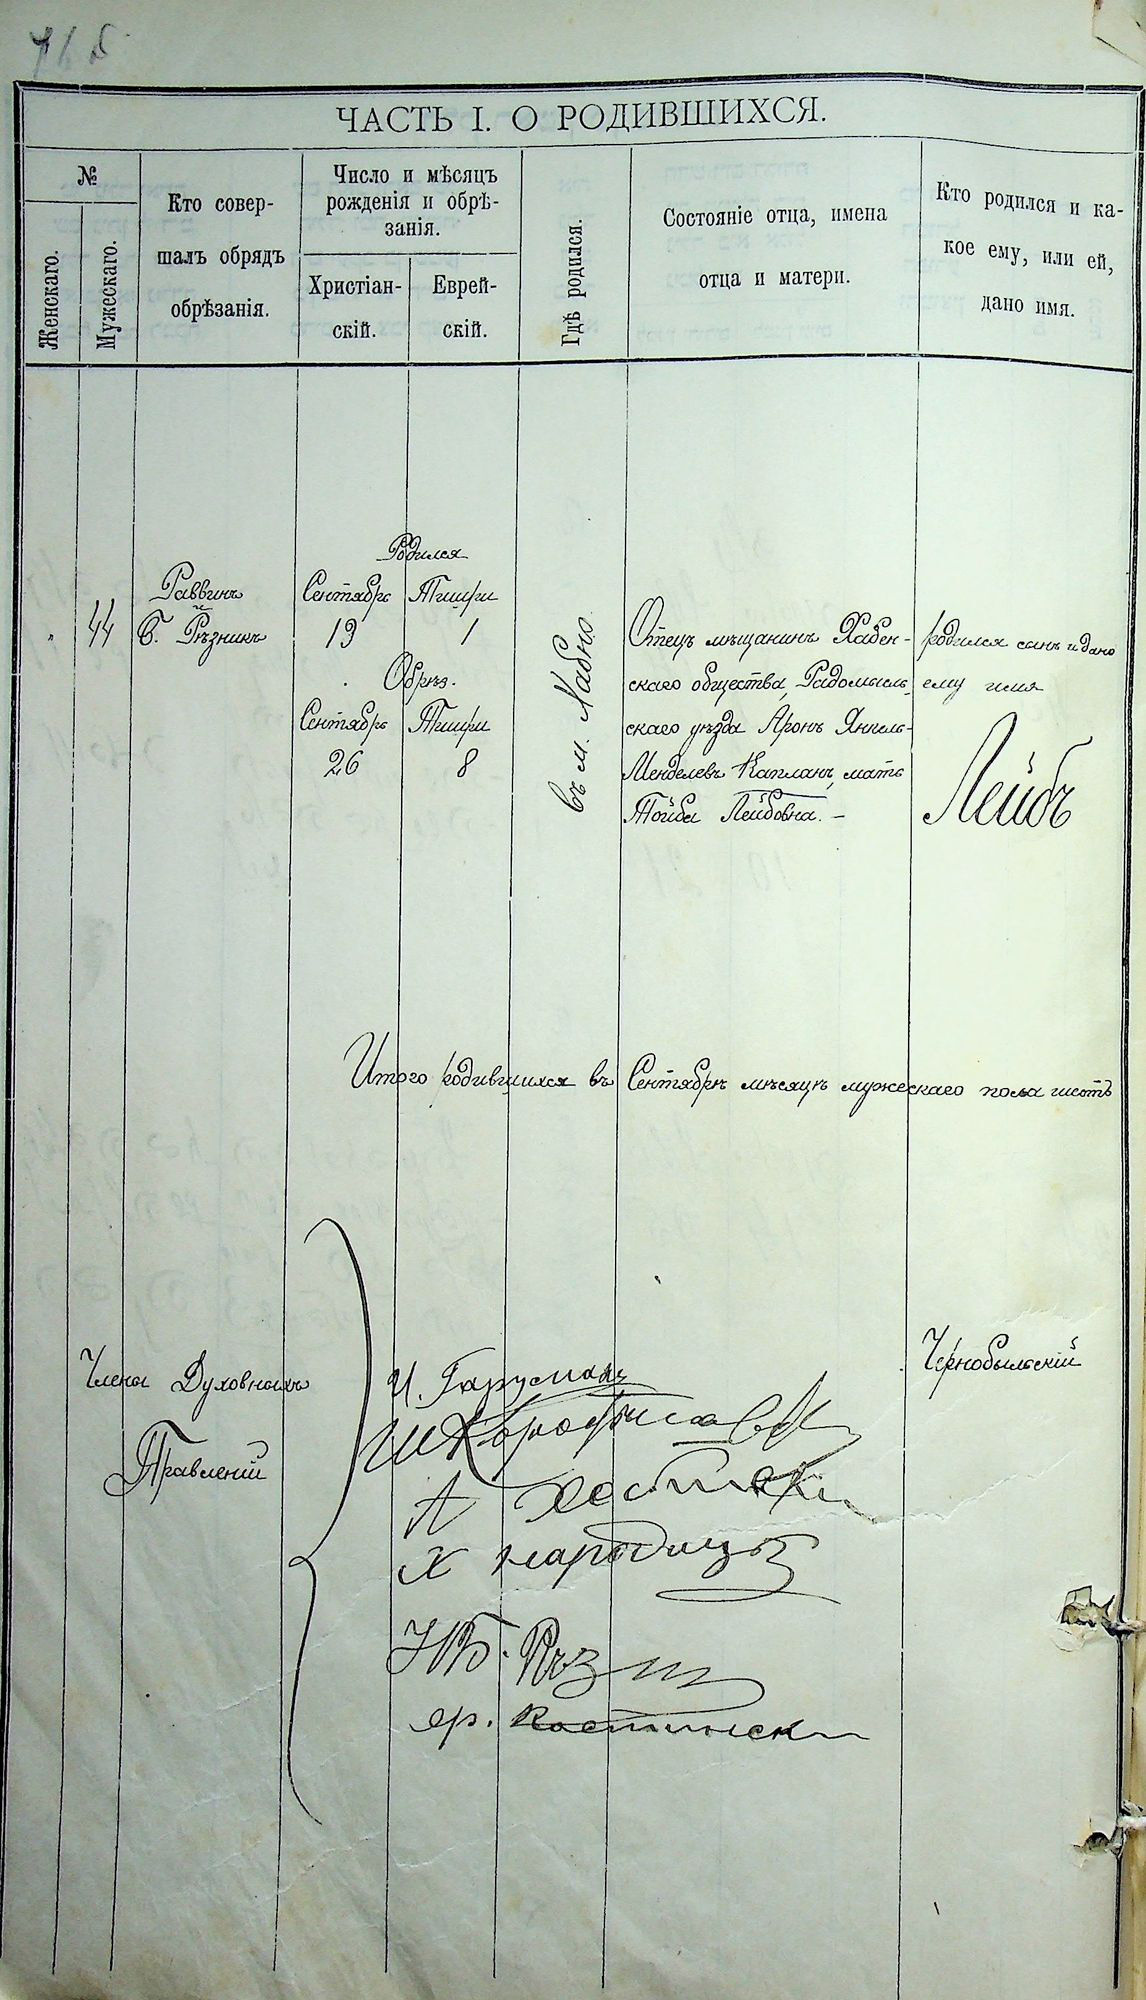 ЧАСТЬ I. О РОДИВШИХСЯ.
№
Женскаго.
Мужескаго.
Кто совер-
шалъ обрядъ
обрѣзанія.
Число и мѣсяцъ
рожденія и обрѣ-
занія.
Христіан-
скій.
Еврей-
скій.
Гдѣ родился.
Состояніе отца, имена
отца и матери.
Кто родился и ка-
кое ему, или ей,
дано имя.
"
44
Раввинъ
Б. Рѣзникъ
Родился
Сентябрь Тишри
19 1
Обрѣз.
Сентябрь Тишри
26 8
въ м. Хабно
Отецъ мѣщанинъ Хабен-
скаго общества, Радомысль-
скаго уѣзда Аронъ Янкель-
Менделевъ Капланъ, мать
Тойба Лейбовна. —
родился сынъ и дано
ему имя
Лейбъ
Итого родившихся въ Сентябрѣ мѣсяцѣ мужескаго пола шесть
Члены Духовныхъ
Правленій
Чернобыльскій